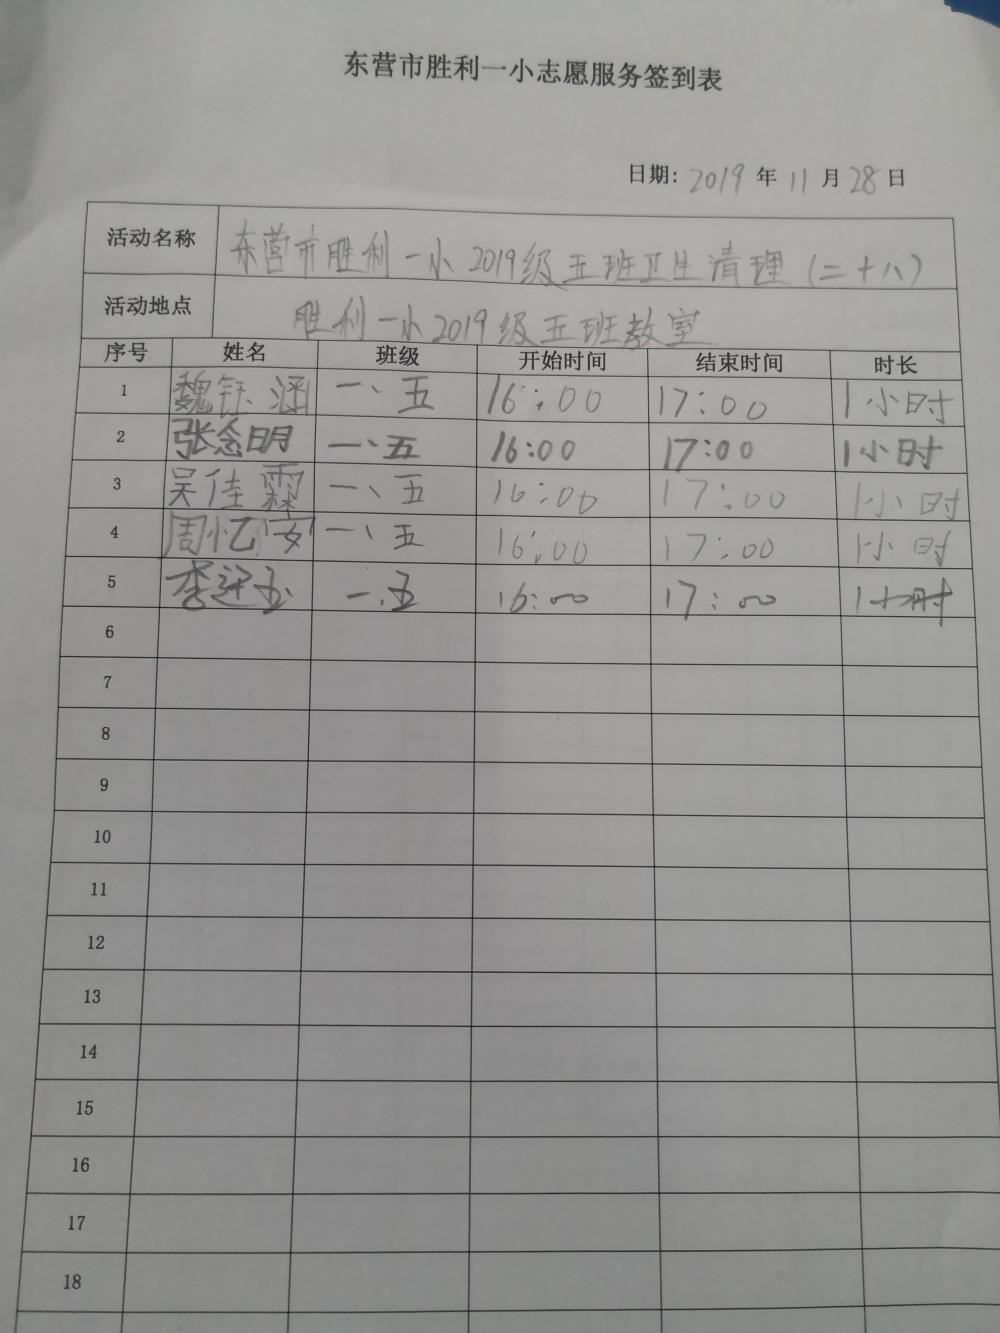 东营市胜利一小志愿服务签到表
日期: 2019 年 11 月 28 日
活动名称 东营市胜利一小2019级五班卫生清理(二十八)
活动地点 胜利一小2019级五班教室
序号 姓名 班级 开始时间 结束时间 时长
1 魏钰涵 一、五 16:00 17:00 1小时
2 张念明 一、五 16:00 17:00 1小时
3 吴佳霖 一、五 16:00 17:00 1小时
4 周忆安 一、五 16:00 17:00 1小时
5 李 玉 一、五 16:00 17:00 1小时
6
7
8
9
10
11
12
13
14
15
16
17
18